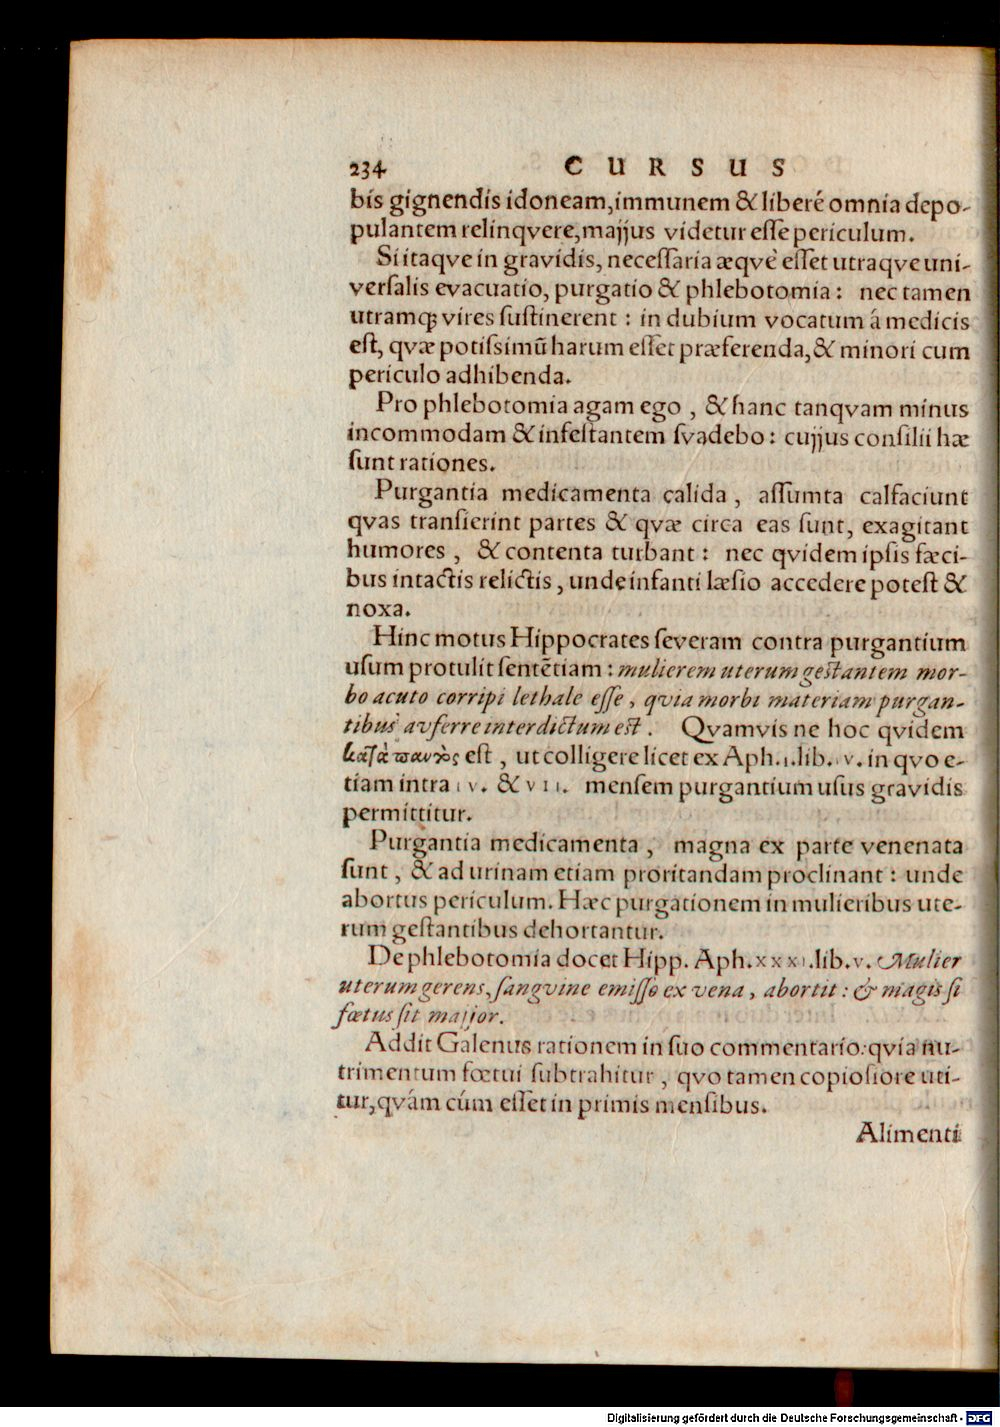 234 CURSUS
bis gignendis idoneam, immunem & liberé omnia depo-
pulantem relinqvere, majjus videtur eſſe periculum.
Si itaqve in gravidis, neceſſaria æqvè eſſet utraqve uni-
verſalis evacuatio, purgatio & phlebotomia: nec tamen
utramq; vires ſuſtinerent: in dubium vocatum á medicis
eſt, qvæ potiſsimũ harum eſſet præferenda, & minori cum
periculo adhibenda.
Pro phlebotomia agam ego, & hanc tanqvam minus
incommodam & infeſtantem ſvadebo: cujjus conſilii hæ
ſunt rationes.
Purgantia medicamenta calida, aſſumta calfaciunt
qvas tranſierint partes & qvæ circa eas ſunt, exagitant
humores, & contenta turbant: nec qvidem ipſis fæci-
bus intactis relictis, unde infanti læſio accedere poteſt &
noxa.
Hinc motus Hippocrates ſeveram contra purgantium
uſum protulit ſentẽtiam: mulierem uterum geſtantem mor-
bo acuto corripi lethale eſſe, qvia morbi materiam purgan-
tibus avferre interdictum eſt. Qvamvis ne hoc qvidem
καθὰ παντὸς eſt, ut colligere licet ex Aph. I. lib. IV. in qvo e-
tiam intra IV. & VII. menſem purgantium uſus gravidis
permittitur.
Purgantia medicamenta, magna ex parte venenata
ſunt, & ad urinam etiam proritandam proclinant: unde
abortus periculum. Hæc purgationem in mulieribus ute-
rum geſtantibus dehortantur.
De phlebotomia docet Hipp. Aph. XXXI. lib. V. Mulier
uterum gerens, ſangvine emiſſo ex vena, abortit: & magis ſi
fœtus ſit majjor.
Addit Galenus rationem in ſuo commentario: qvia nu-
trimentum fœtui ſubtrahitur, qvo tamen copioſiore uti-
tur, qvám cúm eſſet in primis menſibus.
Alimenti
Digitalisierung gefördert durch die Deutsche Forschungsgemeinschaft - DFG